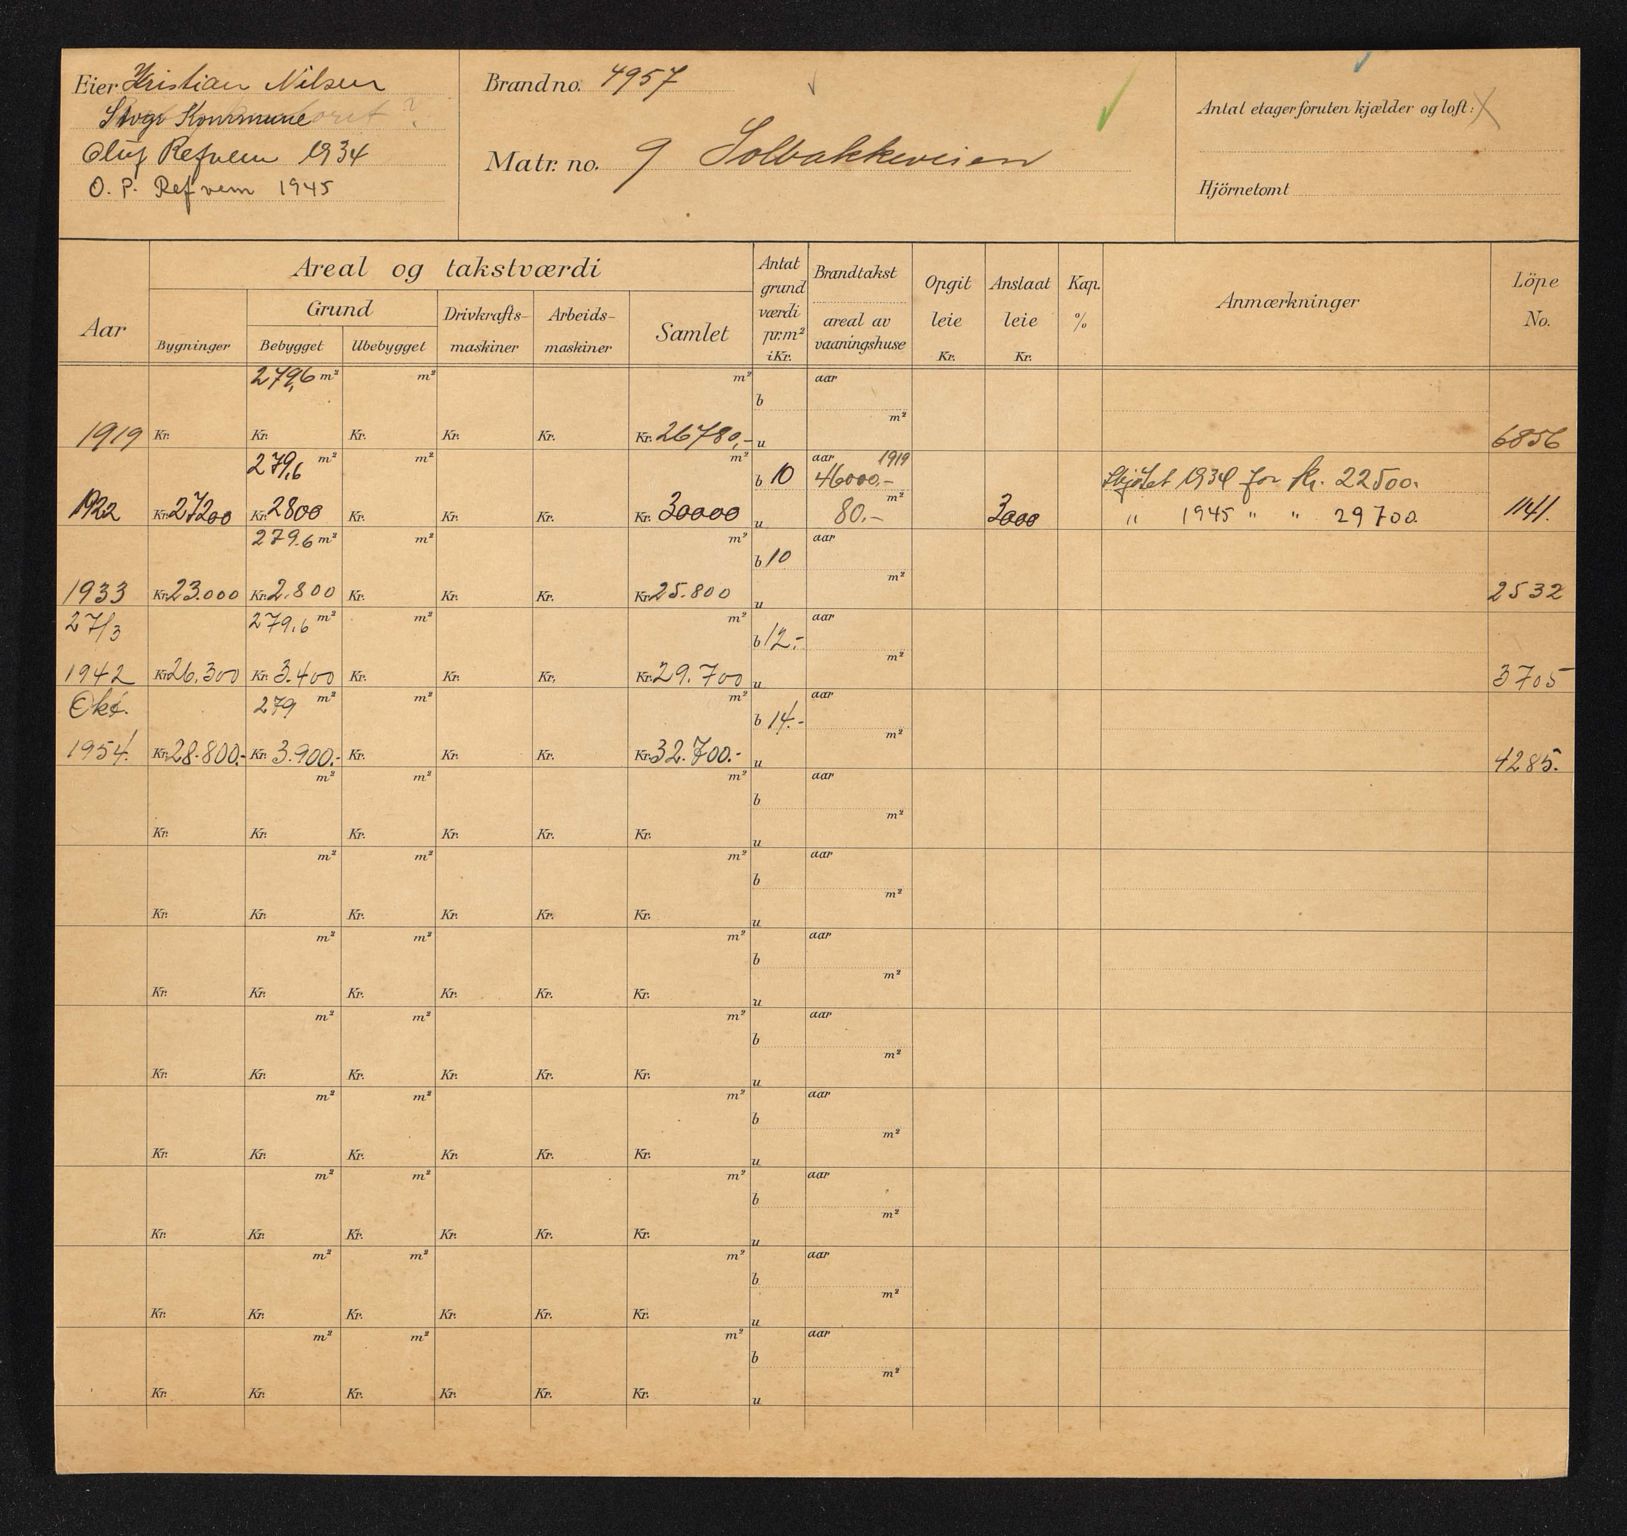 Eier Kristian Nilsen
Kommune
Oluf Refvem 1934
O. P. Refvem 1945
Brandno. 4957
Matr. no. 9 Solbakkeveien
Antal etager foruten kjælder og loft:
Hjörnetomt
Aar
Areal og takstværdi
Grund
Bygninger Bebygget Ubebygget
Drivkrafts-
maskiner
Arbeids-
maskiner
Samlet
Antat
grund
værdi
pr. m²
i Kr.
Brandtakst
areal av
vaaningshuse
Opgit
leie
Kr.
Anslaat
leie
Kr.
Kap.
%
Anmærkninger
Löpe
No.
279,6 m² m² m² aar
b
m²
1919 Kr. Kr. Kr. Kr. Kr. Kr. 26780,- u 6856
279,6 m² m² m² aar 1919
b 10 46000,- Skjötet 1934 for kr. 22500.
m²
1922 Kr. 27200 Kr. 2800 Kr. Kr. Kr. Kr. 30000 u 80.- 3000 " 1945 " " 29700. 1141.
279.6 m² m² m² aar
b 10
m²
1933 Kr. 23.000 Kr. 2.800 Kr. Kr. Kr. Kr. 25.800 u 2532
27/3 279,6 m² m² m² aar
b 12.-
m²
1942 Kr. 26.300 Kr. 3.400 Kr. Kr. Kr. Kr. 29.700 u 3705
Okt. 279 m² m² m² aar
b 14.-
m²
1954. Kr. 28.800.- Kr. 3.900.- Kr. Kr. Kr. Kr. 32.700.- u 4285.
m² m² m² aar
b
m²
Kr. Kr. Kr. Kr. Kr. Kr. u
m² m² m² aar
b
m²
Kr. Kr. Kr. Kr. Kr. Kr. u
m² m² m² aar
b
m²
Kr. Kr. Kr. Kr. Kr. Kr. u
m² m² m² aar
b
m²
Kr. Kr. Kr. Kr. Kr. Kr. u
m² m² m² aar
b
m²
Kr. Kr. Kr. Kr. Kr. Kr. u
m² m² m² aar
b
m²
Kr. Kr. Kr. Kr. Kr. Kr. u
m² m² m² aar
b
m²
Kr. Kr. Kr. Kr. Kr. Kr. u
m² m² m² aar
b
m²
Kr. Kr. Kr. Kr. Kr. Kr. u